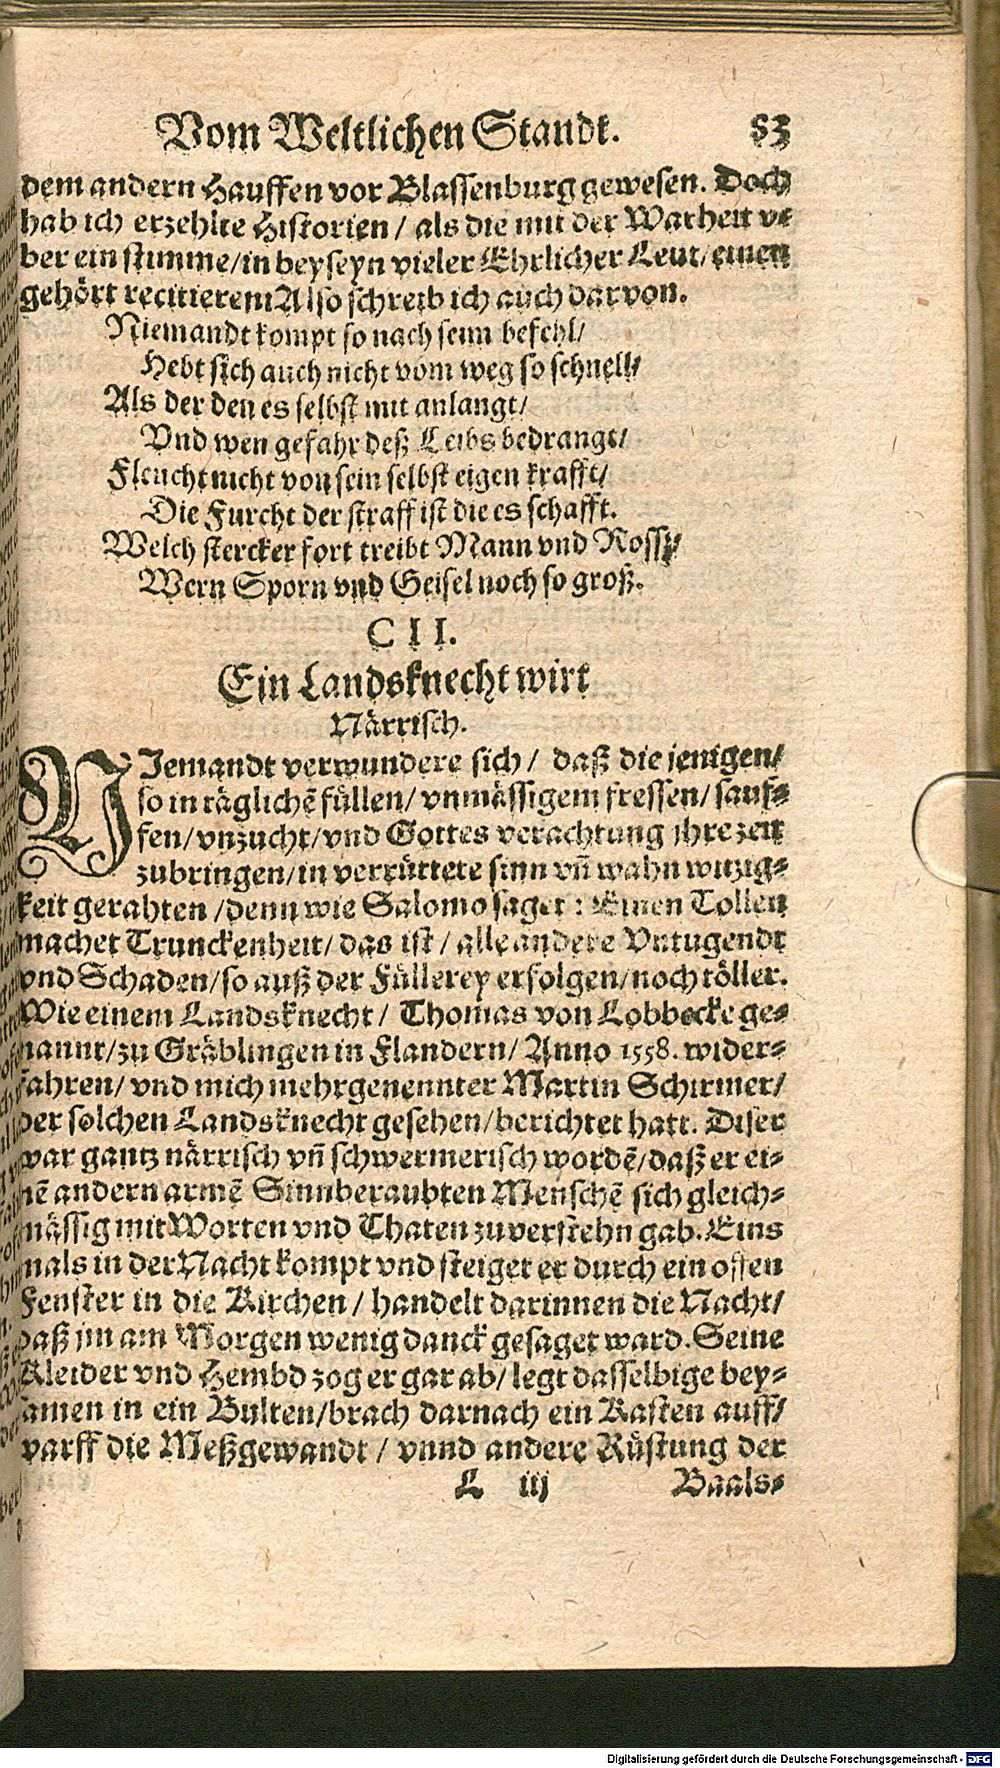 Vom Weltlichen Standt. 83
dem andern Hauffen vor Blassenburg gewesen. Doch
hab ich erzehlte Historien / als die mit der Warheit v⸗
ber ein stimme/in beyseyn vieler Ehrlicher Leut/ einen
gehört recitieren: Also schreib ich auch darvon.
Niemandt kompt so nach seim befehl/
Hebt sich auch nicht vom weg so schnell/
Als der den es selbst mit anlangt/
Vnd wen gefahr deß Leibs bedrangt/
Fleucht nicht von sein selbst eigen krafft/
Die Furcht der straff ist die es schafft.
Welch stercker fort treibt Mann vnd Rossz/
Wern Sporn vnd Geisel noch so groß.
CII.
Ein Landsknecht wirt
Närrisch.
NJemandt verwundere sich / daß die jenigen/
so in täglichẽ füllen/ vnmässigem fressen/ sauf⸗
fen/vnzucht/vnd Gottes verachtung jhre zeit
zubringen/in verrüttete sinn vñ wahn witzig⸗
keit gerahten /denn wie Salomo saget : Einen Tollen
machet Trunckenheit/ das ist / alle andere Vntugendt
vnd Schaden/so auß der Füllerey erfolgen/noch töller.
Wie einem Landsknecht/ Thomas von Lobbecke ge⸗
nannt/zu Gräblingen in Flandern/ Anno 1558. wider⸗
fahren/ vnd mich mehrgenennter Martin Schirmer/
der solchen Landsknecht gesehen/berichtet hatt. Diser
war gantz närrisch vñ schwermerisch wordẽ/daß er ei⸗
nẽ andern armẽ Sinnberaubten Menschẽ sich gleich⸗
mässig mit Worten vnd Thaten zuverstehn gab. Eins
mals in der Nacht kompt vnd steiget er durch ein offen
Fenster in die Kirchen / handelt darinnen die Nacht/
daß jm am Morgen wenig danck gesaget ward. Seine
Kleider vnd Hembd zog er gar ab/ legt dasselbige bey⸗
samen in ein Bulten/brach darnach ein Kasten auff/
warff die Meßgewandt / vnnd andere Rüstung der
L iij Baals⸗
Digitalisierung gefördert durch die Deutsche Forschungsgemeinschaft - DFG